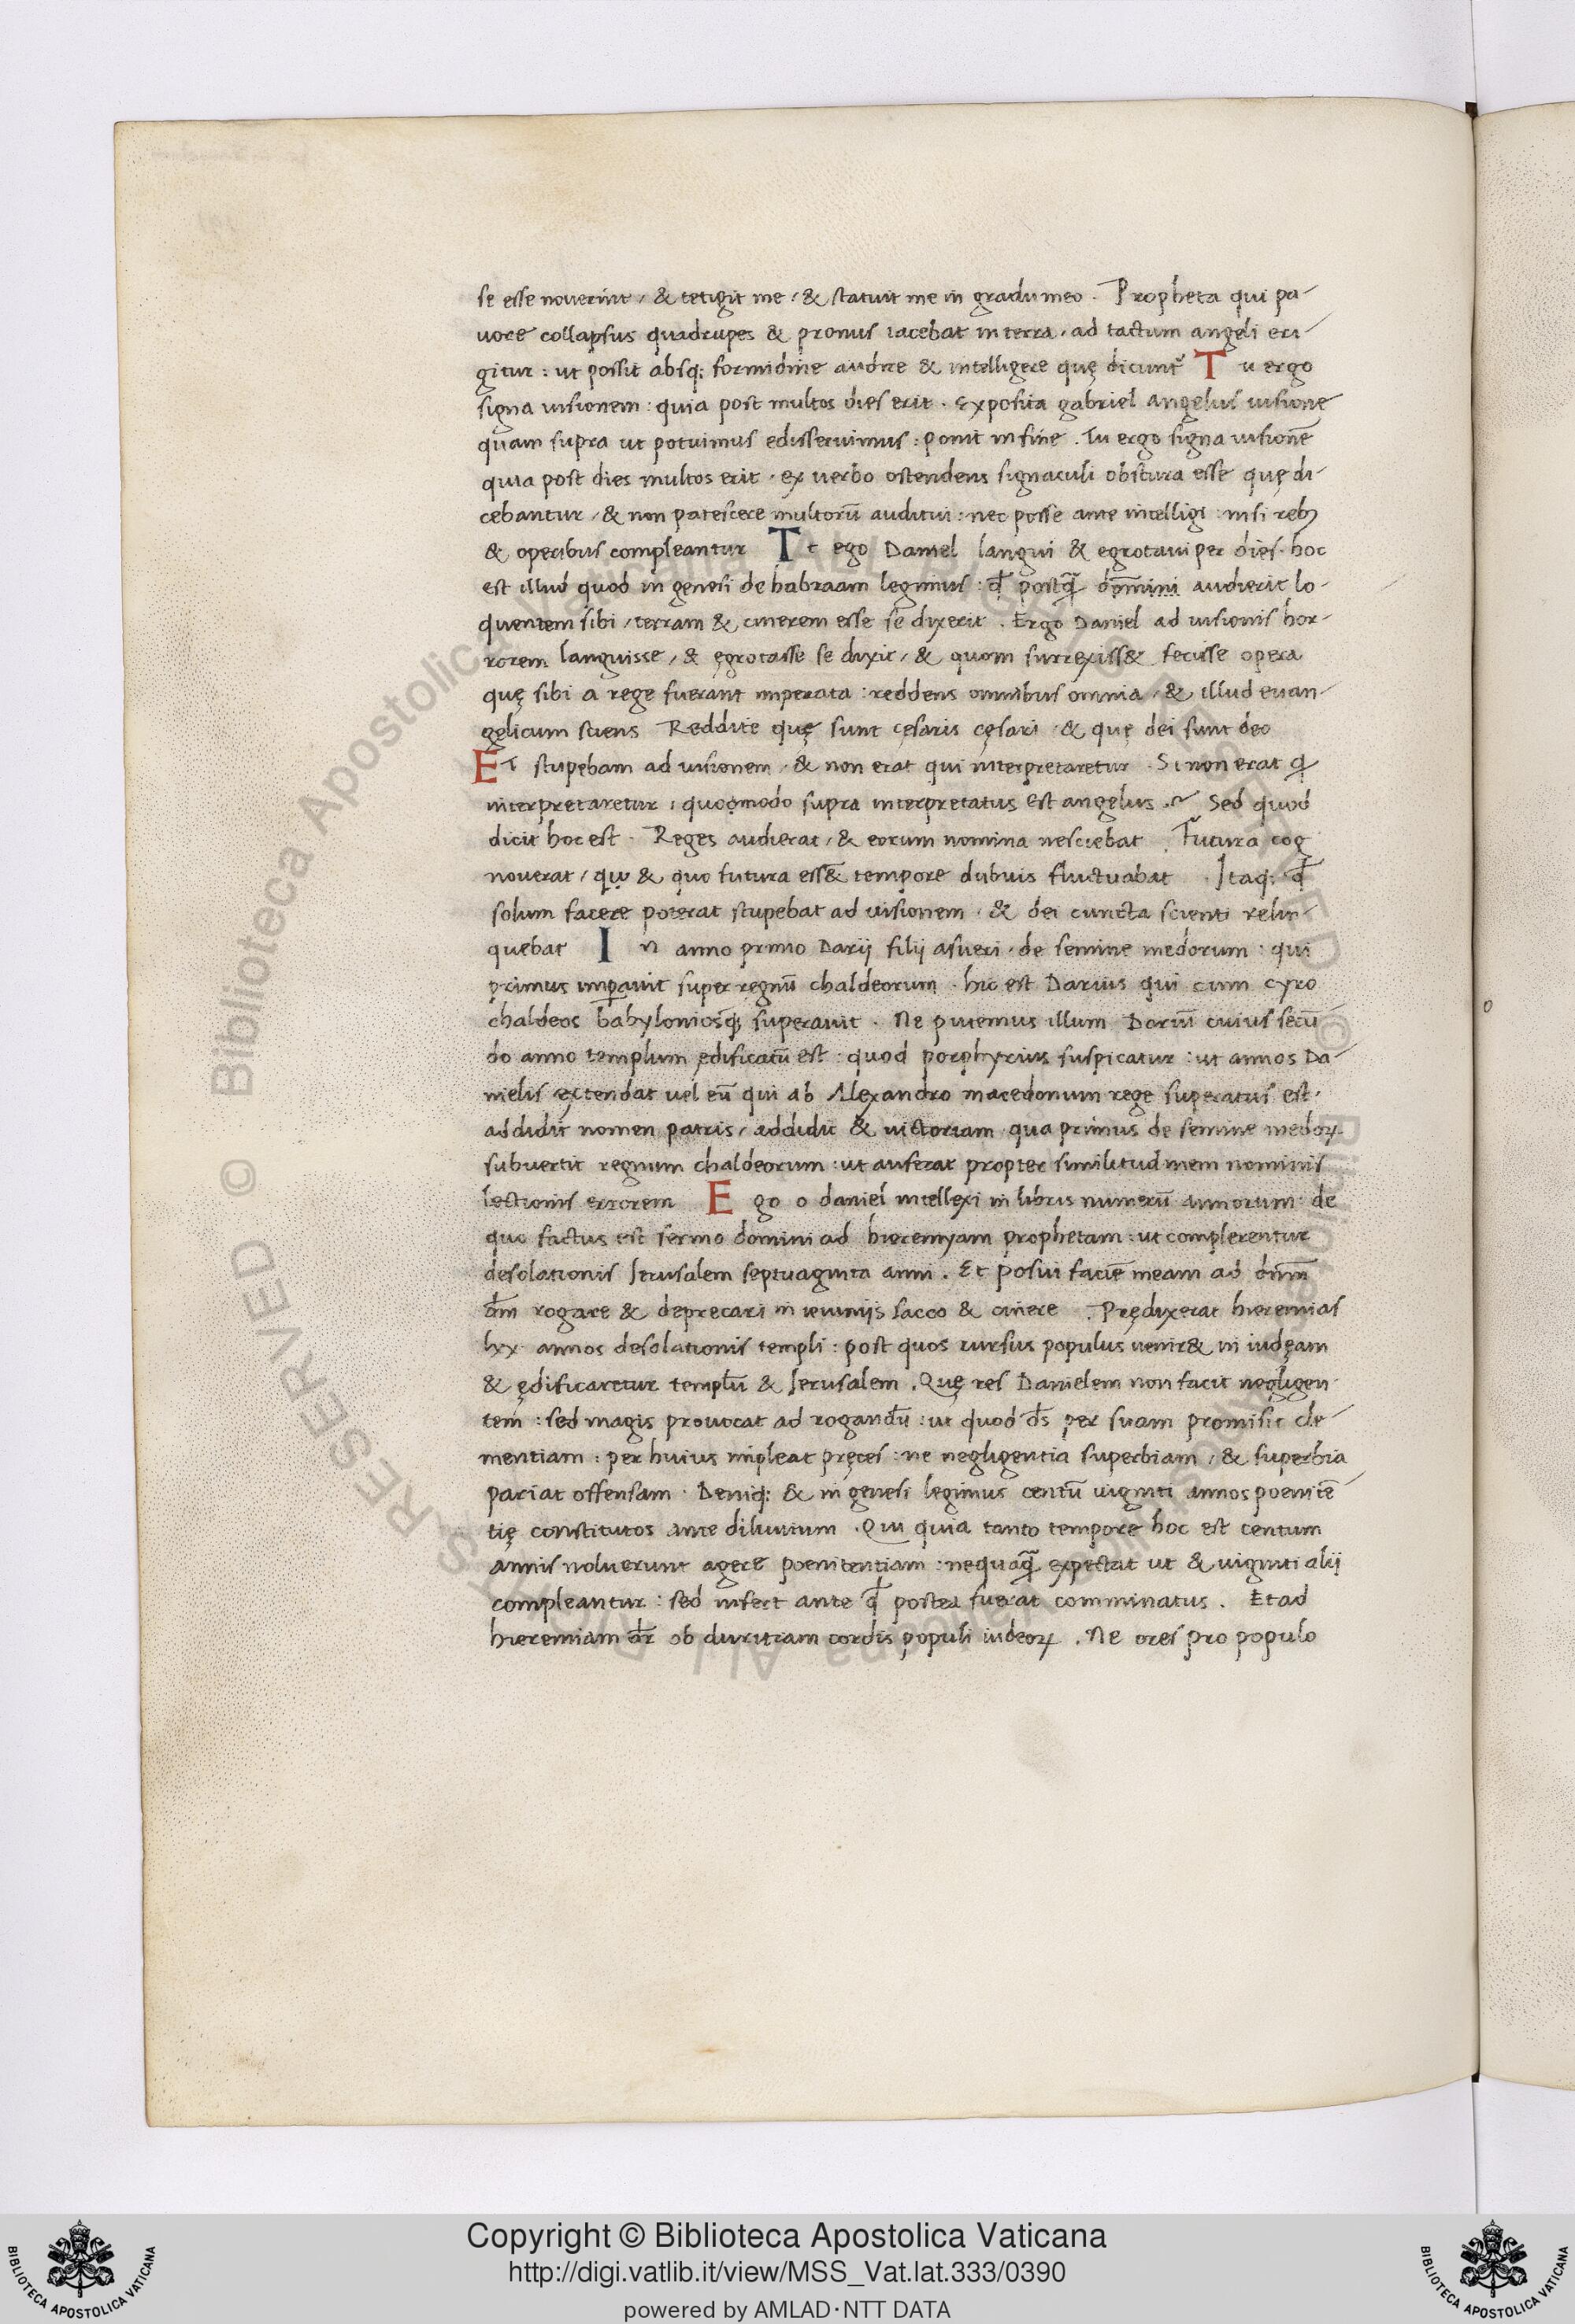 se esse noverint / & tetigit me / & statuit me in gradu meo . Propheta qui pa-
uore collapsus quadrupes & pronus iacebat in terra , ad tactum angeli eri-
gitur : ut possit absq; formidine audire & intelligere quę dicunt᷑ Tu ergo
signa uisionem : quia post multos dies erit . Exposita gabriel angelus uisione
quam supra ut potuimus edisseruimus : ponit in fine . Tu ergo signa uisionē
quia post dies multos erit . ex uerbo ostendens signaculi obscura esse quę di-
cebantur , & non patescere multorū auditui : nec posse ante intelligi : nisi reb;
& operibus compleantur Et ego Daniel langui & egrotaui per dies . hoc
est illud quod in genesi de habraam legimus : qđ postq̄ dominī audierit lo-
quentem sibi / terram & cinerem esse se dixerit . Ergo Daniel ad uisionis hor-
rorem languisse / & ęgrotasse se dixit / & quom surrexiss& fecisse opera
quę sibi a rege fuerant imperata : reddens omnibus omnia , & illud euan-
gelicum sciens Reddite quę sunt cęsaris cęsari , & quę dei sunt deo
ET stupebam ad uisionem , & non erat qui interpretaretur . Si non erat q
interpretaretur , quomodo supra interpretatus est angelus . Sed quod
dicit hoc est . Reges audierat / & eorum nomina nesciebat . Futura cog
nouerat / & quo futura ess& tempore dubius fluctuabat . Itaq; qđ
solum facere poterat stupebat ad uisionem , & dei cuncta scienti relin-
quebat In anno primo Darij filij asueri , de semine medorum : qui
primus imꝑauit super regnū chaldeorum . hic est Darius qui cum cyro
chaldeos babyloniosq; superauit . Ne putemus illum Dariū cuius secū
do anno templum ędificatū est : quod porphyrius suspicatur : ut annos Da-
nielis extendat uel eū qui ab Alexandro macedonum rege superatus est .
addidit nomen patris / addidit & uictoriam qua primus de semine medoꝝ
subuertit regnum chaldeorum : ut auferat propter similitudinem nominis
lectionis errorem Ego o daniel intellexi in libris numerū annorum : de
quo factus est sermo domini ad hieremyam prophetam : ut complerentur
desolationis Jerusalem septuaginta anni . Et posui faciē meam ad dn̄m
dm̄ rogare & deprecari in ieiunijs sacco & cinere . Prędixerat hieremias
lxx annos desolationis templi : post quos rursus populus uenir& in iudęam
& ędificaretur templū & Jerusalem . Quę res Danielem non facit negligen
tem : sed magis prouocat ad rogandū : ut quod ds̄ per suam promisit cle-
mentiam : per huius impleat pręces : ne negligentia superbiam , & superbia
pariat offensam . Deniq; & in genesi legimus centū uiginti annos poenitē
tię constitutos ante diluuium . Qui quia tanto tempore hoc est centum
annis noluerunt agere poenitentiam : nequaq̄ expectat ut & uiginti alij
compleantur : sed infert ante qđ postea fuerat comminatus . Et ad
hieremiam dr̄ ob duritiam cordis populi iudeoꝝ . Ne ores pro populo
Copyright © Biblioteca Apostolica Vaticana
http://digi.vatlib.it/view/MSS_Vat.lat.333/0390
powered by AMLAD·NTT DATA
BIBLIOTECA APOSTOLICA VATICANA
BIBLIOTECA APOSTOLICA VATICANA